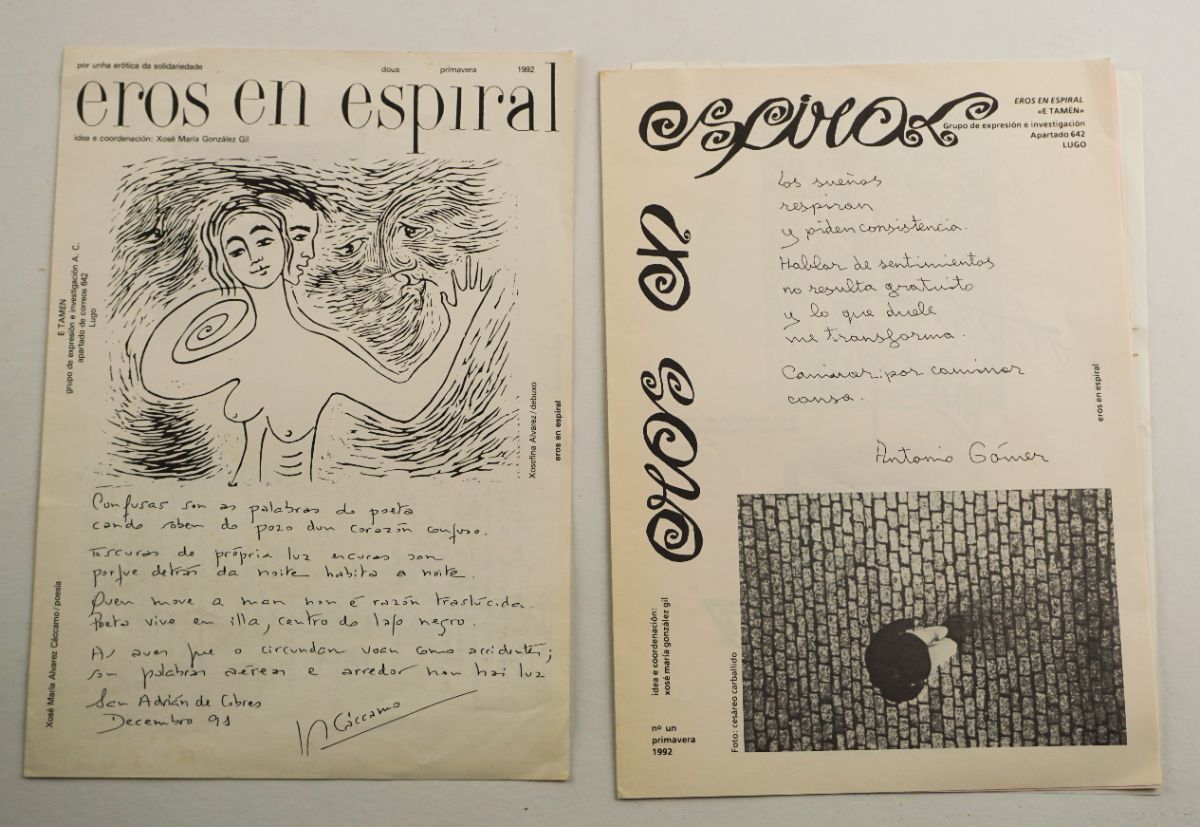 por unha erótica da solidariedade
dous primavera 1992
eros en espiral
idea e coordenación: Xosé María González Gil
E TAMEN
grupo de expresión e investigación A. C.
apartado de correos 642
Lugo
Xosefina Alvarez/debuxo
eros en espiral
Confusas son as palabras do poeta
cando soben do pozo dun corazón confuso.
Escuras de própria luz escuras son
porque detrás da noite habita a noite.
Quen move a man non é razón traslúcida.
Poeta vive en illa, centro do lago negro.
As aves que o circundan voan como accidentes;
son palabras aéreas e arredor non hai luz
San Adrián de Cobres
Decembro 91
Cáccamo
Xosé María Alvarez Cáccamo/poesía
eros en espiral
EROS EN ESPIRAL
«E TAMÉN»
Grupo de expresión e investigación
Apartado 642
LUGO
Los sueños
respiran
y piden consistencia.
Hablar de sentimientos
no resulta gratuito
y lo que duele
me transforma.
Caminar por caminar
cansa.
Antonio Gómez
eros en espiral
idea e coordenación:
xosé maría gonzález gil
nº un
primavera
1992
Foto: cesáreo carballido